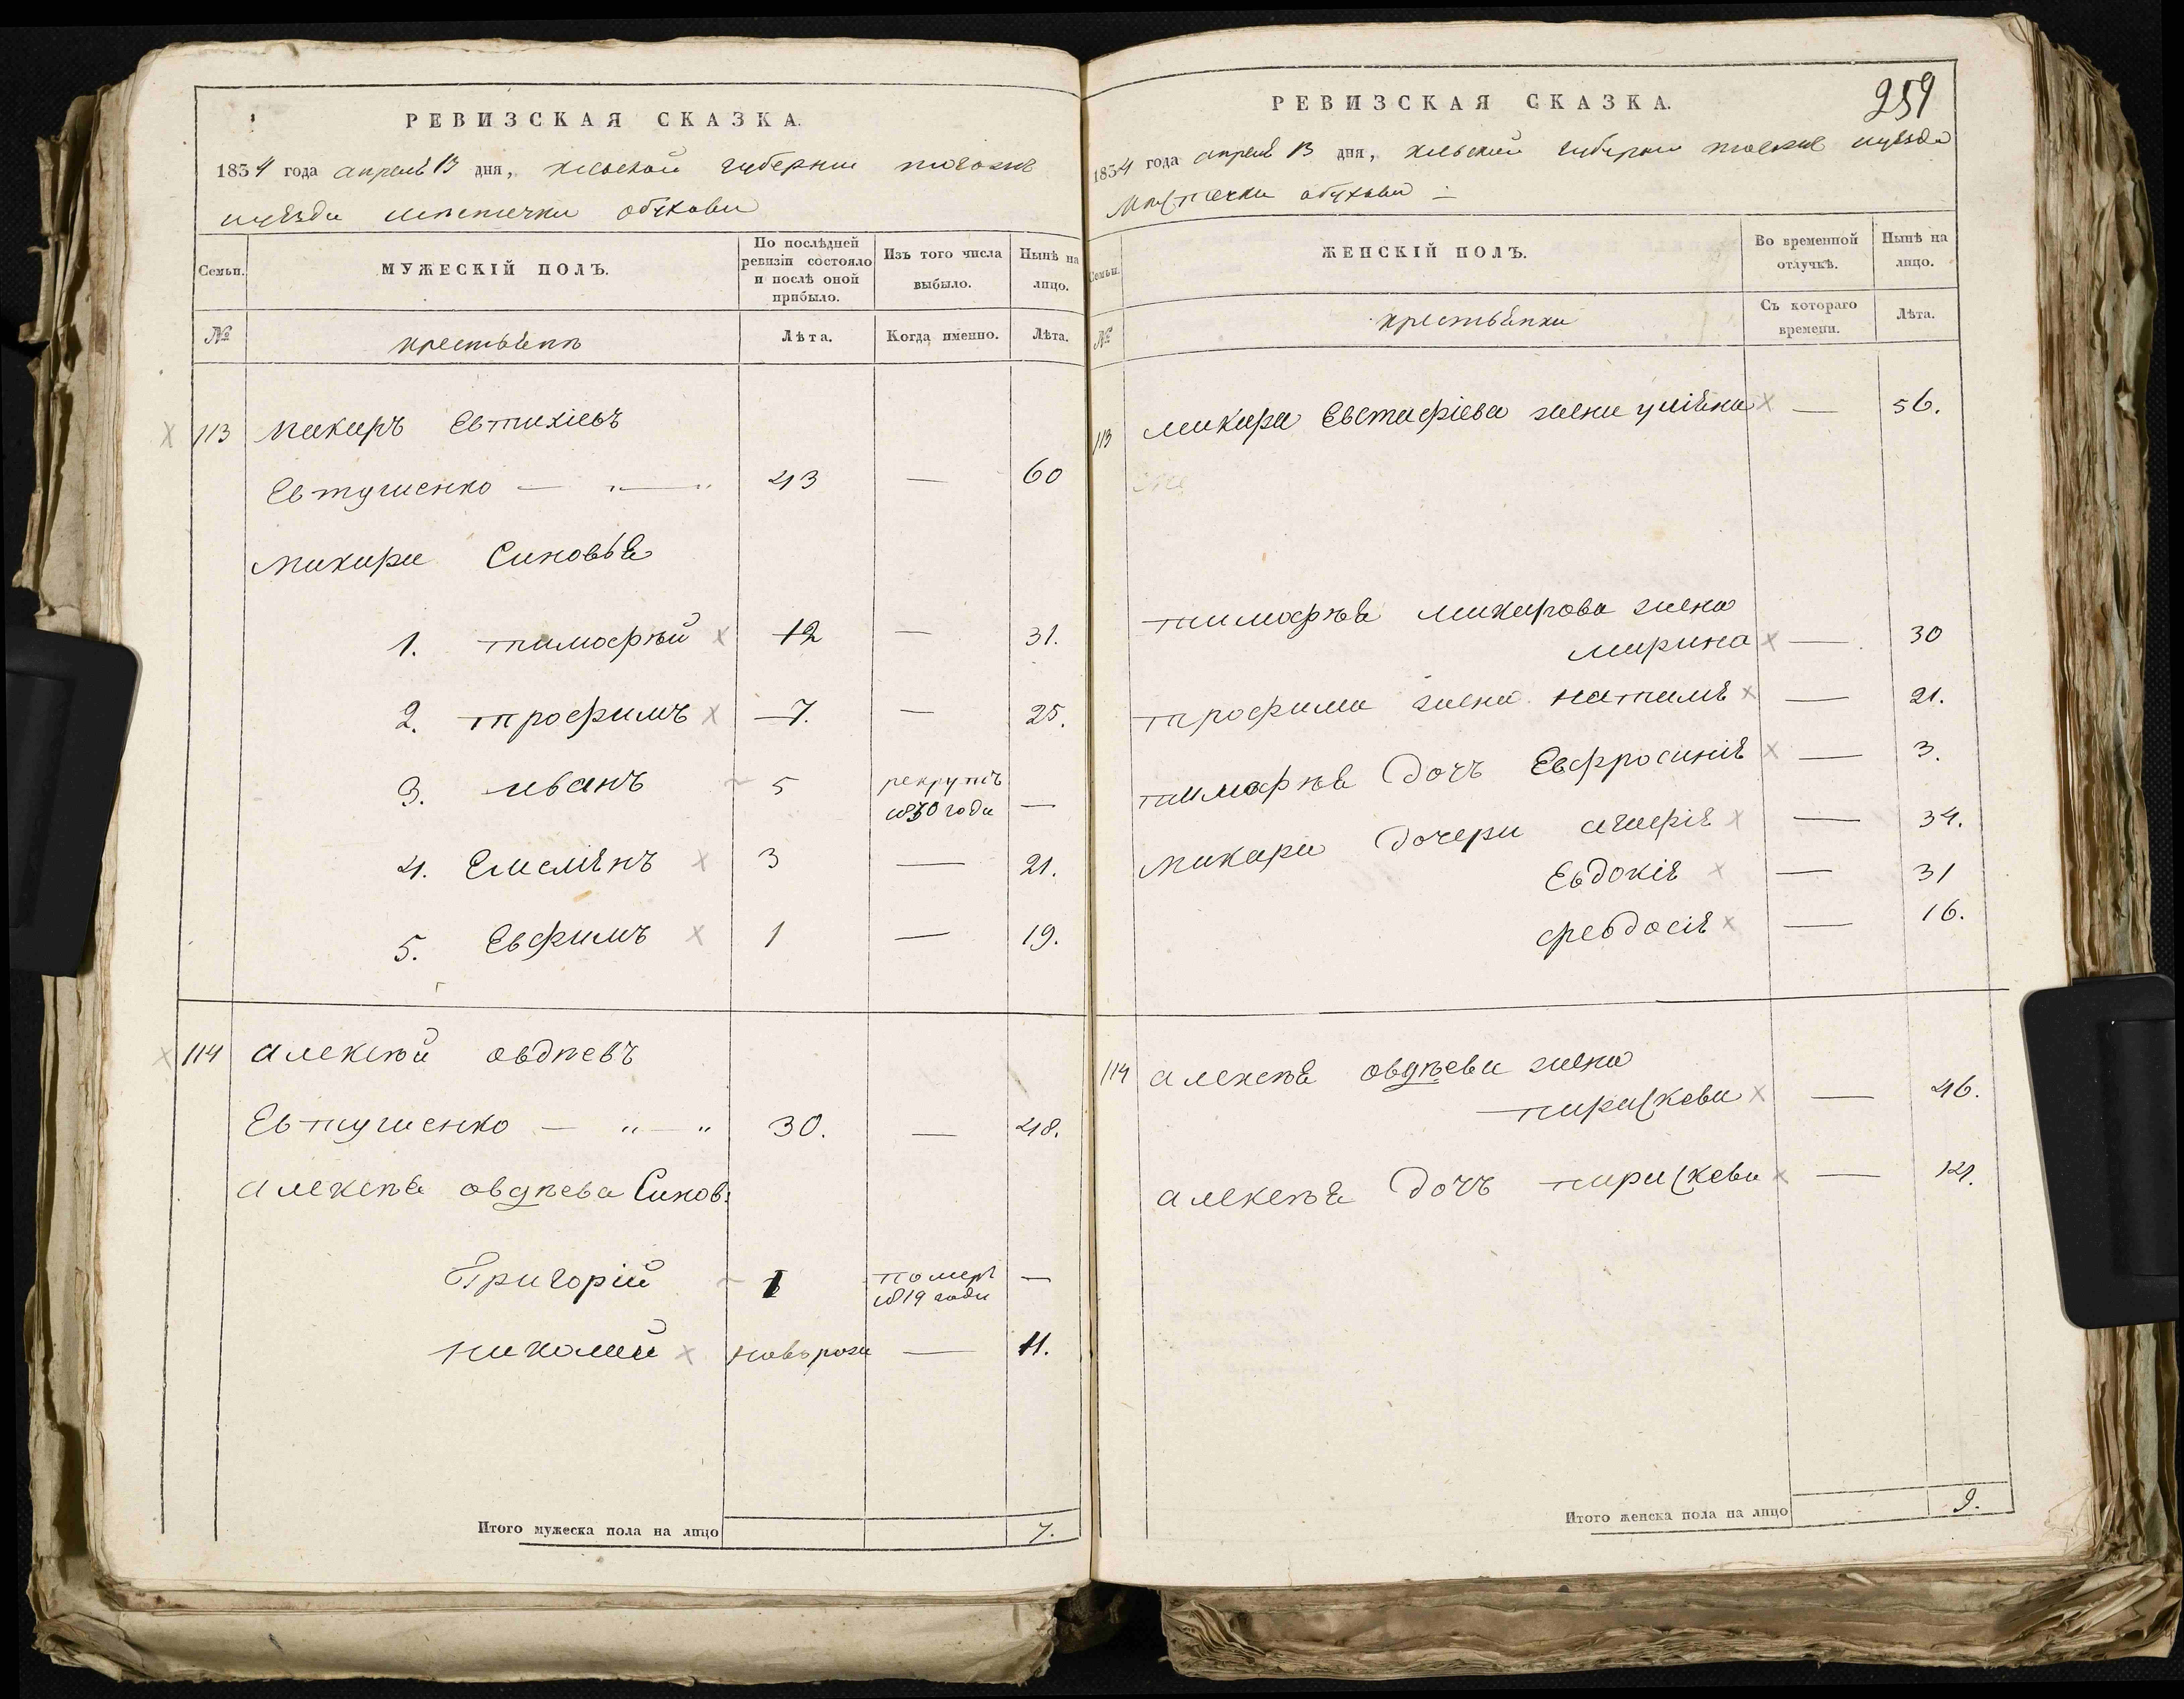 РЕВИЗСКАЯ СКАЗКА.
1854 года апреля 13 дня, киевской губернии
уезда местечка обухова
Семьи.
МУЖЕСКІЙ ПОЛЪ.
По послѣдней ревизіи состояло и послѣ оной прибыло.
Изъ того числа выбыло.
Нынѣ на лицо.
№
крестьяне
Лѣта.
Когда именно.
Лѣта.
113 макаръ Евтихіевъ
Евтушенко — 43 — 60
макара Синовья
1. тимофѣй 12 — 31.
2. трофимъ 7. — 25.
3. иванъ 5 рекрутъ 1850 года —
4. Емелiянъ 3 — 21.
5. Евфимъ 1 — 19.
114 алексѣй овдѣевъ
Евтушенко — 30. — 48.
алексѣя овдѣева Синов:
Григорій 1 померъ —
николай — 11.
Итого мужеска пола на лицо 7.
259
РЕВИЗСКАЯ СКАЗКА.
1854 года апреля 13 дня, киевской губернии уезда
Местечка обухова
Семьи.
ЖЕНСКІЙ ПОЛЪ.
Во временной отлучкѣ.
Нынѣ на лицо.
№
крестьянки
Съ котораго времени.
Лѣта.
113 макара Евстафіева жена улiяна — 56.
тимофѣя макарова жена
марина — 30
трофима жена наталiя — 21.
тимофѣя дочь Евфросинiя — 3.
макара дочери агафiя — 34.
Евдокiя — 31
феодосiя — 16.
114 алексѣя овдѣева жена
параскева — 46.
алексѣя дочь параскева — 14.
Итого женска пола на лицо 9.